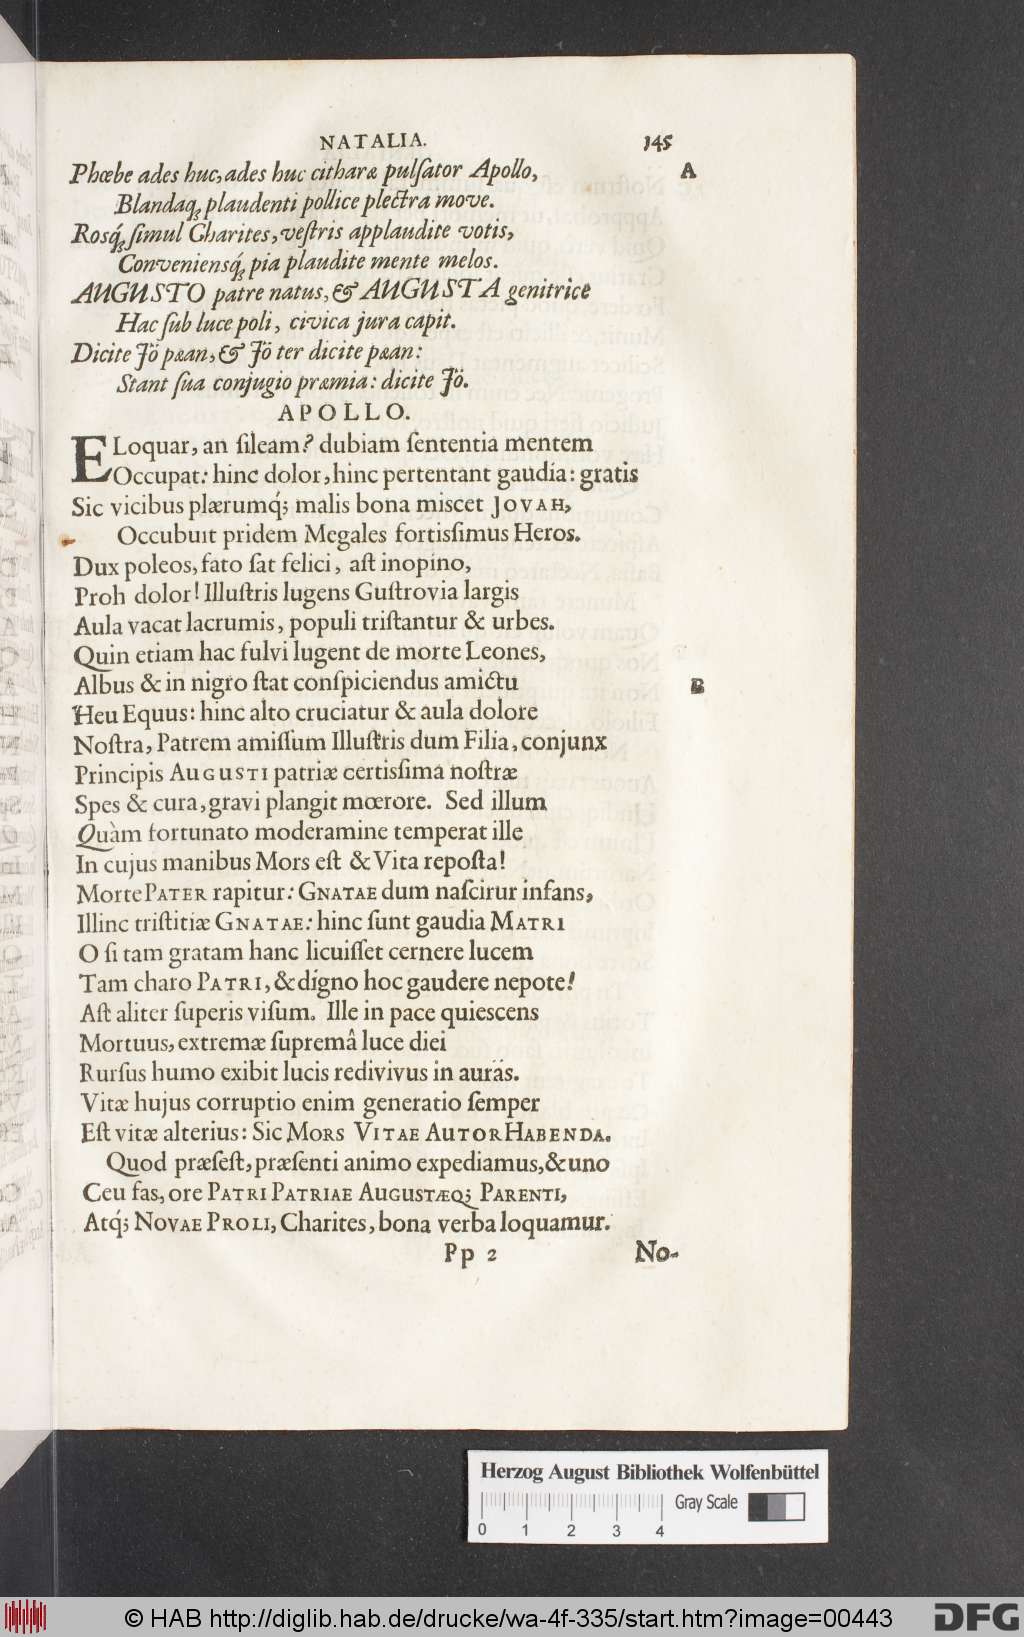 NATALIA. 145
Phœbe ades huc, ades huc citharæ pulſator Apollo, A
Blandaq; plaudenti pollice plectra move.
Rosq́; ſimul Charites, veſtris applaudite votis,
Conveniensq́; pia plaudite mente melos.
AUGUSTO patre natus, & AUGUSTA genitrice
Hac ſub luce poli, civica jura capit.
Dicite Jö pæan, & Jö ter dicite pæan:
Stant ſua conjugio præmia: dicite Jö.
APOLLO.
ELoquar, an ſileam? dubiam ſententia mentem
Occupat: hinc dolor, hinc pertentant gaudia: gratis
Sic vicibus plærumq́; malis bona miscet JOVAH,
Occubuit pridem Megales fortiſsimus Heros.
Dux poleos, fato ſat felici, aſt inopino,
Proh dolor! Illuſtris lugens Guſtrovia largis
Aula vacat lacrumis, populi triſtantur & urbes.
Quin etiam hac fulvi lugent de morte Leones,
Albus & in nigro ſtat conſpiciendus amictu B
Heu Equus: hinc alto cruciatur & aula dolore
Noſtra, Patrem amiſſum Illuſtris dum Filia, conjunx
Principis AUGUSTI patriæ certiſsima noſtræ
Spes & cura, gravi plangit mœrore. Sed illum
Quàm fortunato moderamine temperat ille
In cujus manibus Mors eſt & Vita repoſta!
Morte PATER rapitur: GNATAE dum naſcirur infans,
Illinc triſtitiæ GNATAE: hinc ſunt gaudia MATRI
O ſi tam gratam hanc licuiſſet cernere lucem
Tam charo PATRI, & digno hoc gaudere nepote!
Aſt aliter ſuperis viſum. Ille in pace quiescens
Mortuus, extremæ ſupremâ luce diei
Rurſus humo exibit lucis redivivus in auras.
Vitæ hujus corruptio enim generatio ſemper
Eſt vitæ alterius: Sic MORS VITAE AUTOR HABENDA.
Quod præſeſt, præſenti animo expediamus, & uno
Ceu fas, ore PATRI PATRIAE AUGUSTÆQ; PARENTI,
Atq́; NOVAE PROLI, Charites, bona verba loquamur.
Pp 2 No-
Herzog August Bibliothek Wolfenbüttel
Gray Scale
0 1 2 3 4
© HAB http://diglib.hab.de/drucke/wa-4f-335/start.htm?image=00443
DFG